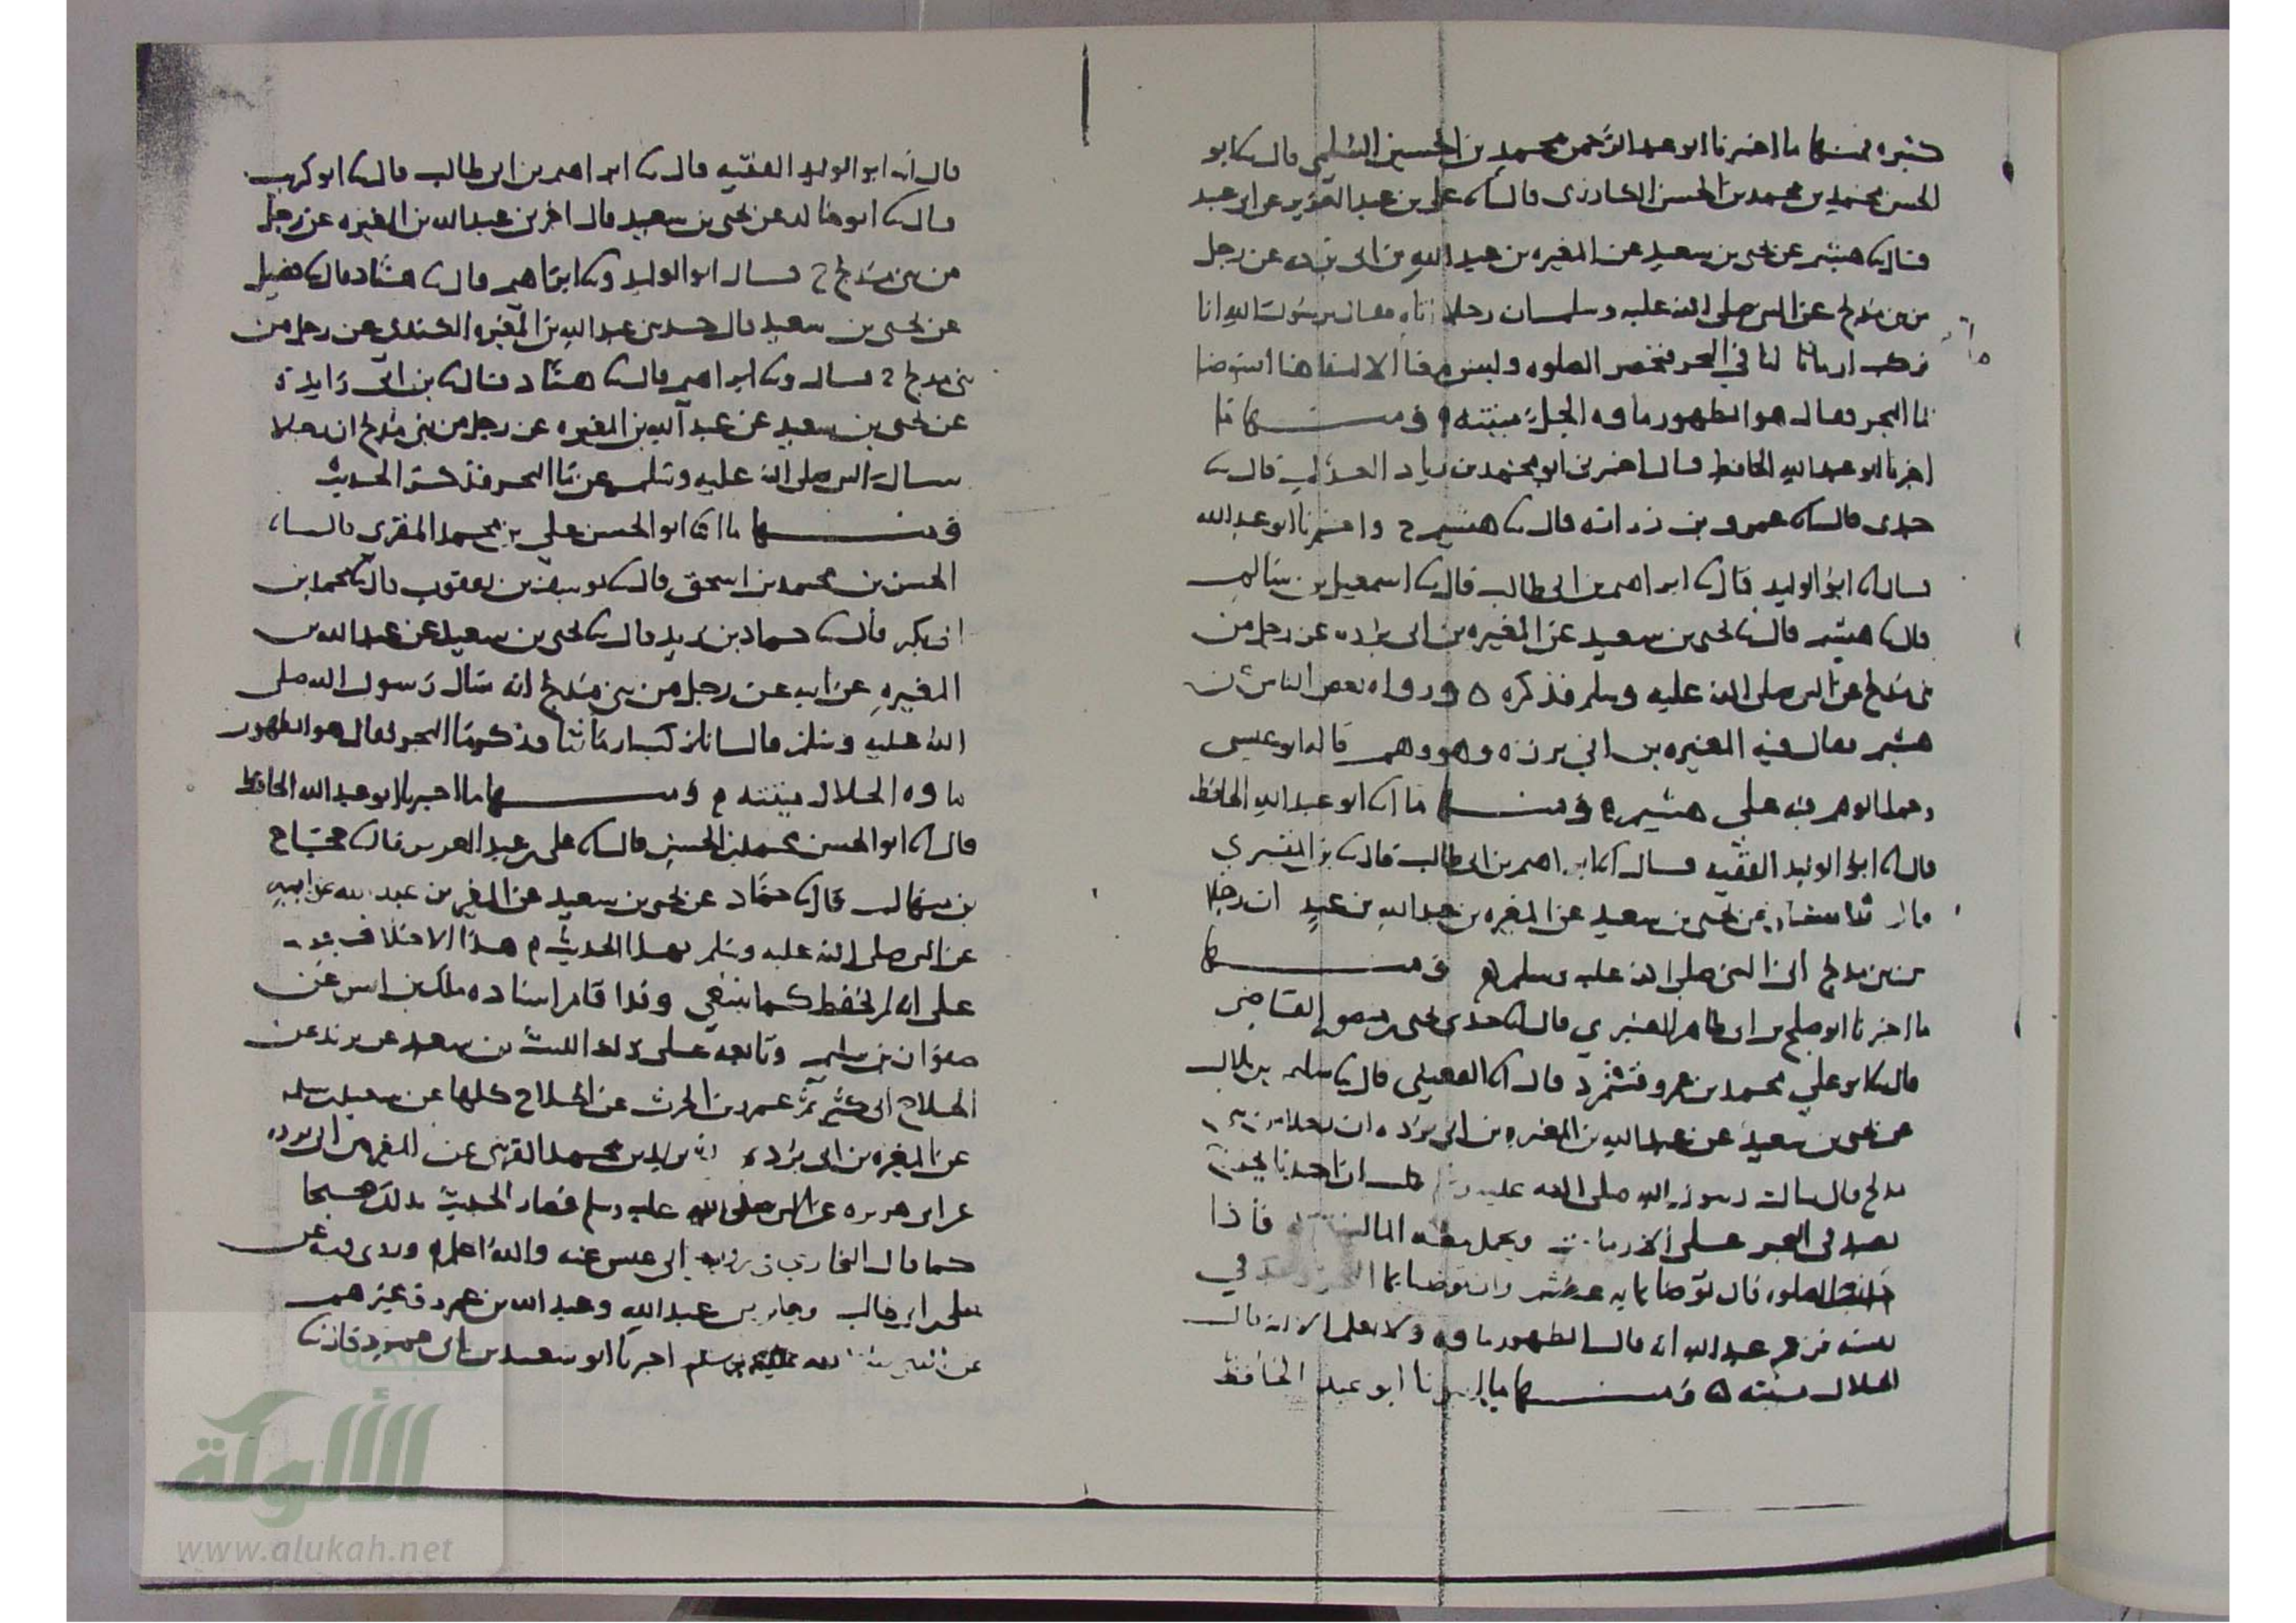 كثيره فمنها ما اخبرنا ابو عبد الرحمن محمد بن الحسين السلمي قال ثنا ابو
الحسن محمد بن محمد بن الحسن الكارزى قال ثنا على بن عبد العزيز عن ابى عبيد
قال ثنا هشيم عن يحيى بن سعيد عن المغيره بن عبد الله بن ابى برده عن رجل
من بنى مدلج عن النبى صلى الله عليه وسلم ان رجلا اتاه فقال يرسول الله انا
نركب ارماثا لنا فى البحر فتحضر الصلوه وليس معنا ماء الا لشفاهنا انتوضا
بما البحر فقال هو الطهور ماوه الحل ميتته ومنها ما
اخبرنا ابو عبد الله الحافظ قال اخبرنى ابو محمد بن زياد العدل قال ثنا
جدى قال ثنا عمرو بن زراره قال ثنا هشيم ح واخبرنا ابو عبد الله
قال انا ابو الوليد قال ثنا ابراهيم بن ابى طالب قال ثنا اسمعيل بن سالم
قال ثنا هشيم قال ثنا يحيى بن سعيد عن المغيره بن ابى برده عن رجل من
بنى مدلج عن النبى صلى الله عليه وسلم فذكره ورواه بعض الناس عن
هشيم فقال فيه المغيره بن ابى برزه وهو وهم قاله ابو عيسى
وحمل الوهم فيه على هشيم ومنها ما انا ابو عبد الله الحافظ
قال انا ابو الوليد الفقيه قال انا ابراهيم بن ابى طالب قال ثنا بن المقري
قال ثنا سفيان عن يحيى بن سعيد عن المغيره بن عبد الله بن عبد ان رجلا
من بنى مدلج اتى النبى صلى الله عليه وسلم ومنها
ما اخبرنا ابو صلح بن ابى طاهر العنبري قال انا جدى يحيى بن منصور القاضى
قال ثنا ابو علي محمد بن عمرو قشمرد قال انا القعنبى قال ثنا سليم بن بلال
عن يحيى بن سعيد عن عبد الله بن المغيره بن ابى برده ان رجلا من بنى
مدلج قال سالت رسول الله صلى الله عليه وسلم
الصيد فى البحر على الارماث ويحمل معه الما فاذا
الصلوه قال توضا بمايه عطش وان توضا بما فى
نفسه فزعم عبد الله انه قال الطهور ماوه ولا اعلم الا انه قال
الحلال ميتته ومنها ما اخبرنا ابو عبد الحافظ
قال انا ابو الوليد الفقيه قال ثنا ابراهيم بن ابى طالب قال ثنا ابو كريب
قال ثنا ابو خالد عن يحيى بن سعيد قال اخبرنى عبد الله بن المغيره عن رجل
من بنى مدلج ح قال ابو الوليد وثنا ابراهيم قال ثنا هناد قال ثنا فضيل
عن يحيى بن سعيد قال حدثنى عبد الله بن المغيره الكندى عن رجل من
بنى مدلج ح قال وثنا ابراهيم قال ثنا هناد قال ثنا بن ابى زايدة
عن يحيى بن سعيد عن عبد الله بن المغيره عن رجل من بنى مدلج ان رجلا
سال النبى صلى الله عليه وسلم عن ما البحر فذكر الحديث
ومنها ما انا ابو الحسن علي بن محمد المقرى قال انا
الحسن بن محمد بن اسحق قال ثنا يوسف بن يعقوب قال ثنا محمد بن
ابى بكر قال ثنا حماد بن زيد قال ثنا يحيى بن سعيد عن عبد الله بن
المغيره عن ابيه عن رجل من بنى مدلج انه سال رسول الله صلى
الله عليه وسلم قال انا نركب ارماثنا فذكر ما البحر فقال هو الطهور
ماوه الحلال ميتته ومنها ما اخبرنا ابو عبد الله الحافظ
قال انا ابو الحسن محمد بن الحسن قال ثنا على بن عبد العزيز قال ثنا حجاج
بن منهال قال ثنا حماد عن يحيى بن سعيد عن المغيره بن عبد الله عن ابيه
عن النبى صلى الله عليه وسلم بهذا الحديث هذا الاختلاف يدل
على انه لم يحفظ كما ينبغي وقد اقام اسناده ملك بن انس عن
صفوان بن سليم وتابعه على ذلك الليث بن سعد عن يزيد عن
الجلاح ابى كثير ثم عمرو بن الحرث عن الجلاح كلاهما عن سعيد بن سلمه
عن المغيره بن ابى برده يزيد بن محمد القرشى عن المغيره بن ابى برده
عن ابى هريره عن النبى صلى الله عليه وسلم فصار الحديث بذلك صحيحا
كما قال البخاري فى روايه ابى عيسى عنه والله اعلم وروى فيه عن
على بن ابى طالب وجابر بن عبد الله وعبد الله بن عمرو وغيرهم
عن النبى صلى الله عليه وسلم اخبرنا ابو سعيد بن ابى عمرو قال ثنا
الألوكة
www.alukah.net